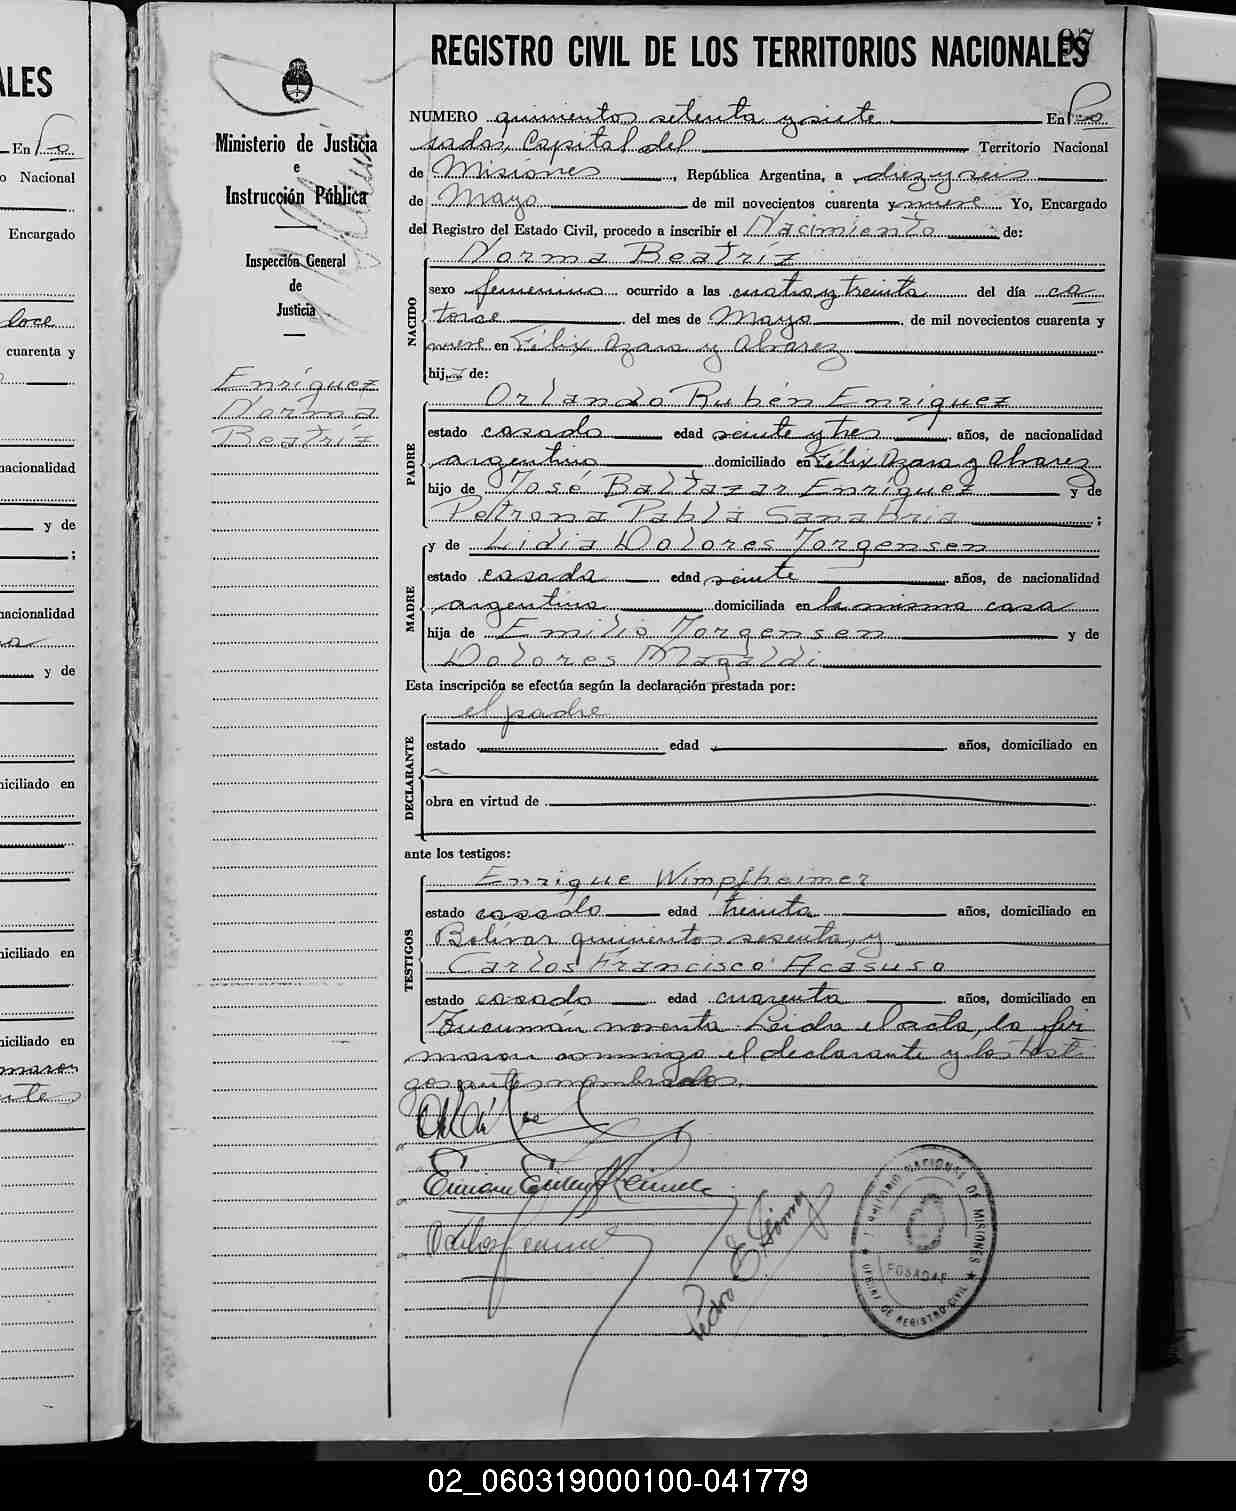 ALES
En Po
o Nacional
Encargado
loce
cuarenta y
nacionalidad
y de
;
nacionalidad
y de
niciliado en
niciliado en
niciliado en
maron
Ministerio de Justicia
e
Instrucción Pública
Inspección General
de
Justicia
Enríquez
Norma
Beatríz
97
REGISTRO CIVIL DE LOS TERRITORIOS NACIONALES
NUMERO quinientos setenta y siete En Po
sadas, Capital del Territorio Nacional
de Misiones, República Argentina, a diez y seis
de Mayo de mil novecientos cuarenta y nueve. Yo, Encargado
del Registro del Estado Civil, procedo a inscribir el Nacimiento de:
NACIDO
Norma Beatríz
sexo femenino ocurrido a las cuatro y treinta del día ca
torce del mes de Mayo de mil novecientos cuarenta y
nueve en Félix Azara y Alvarez
hija de:
PADRE
Orlando Rubén Enríquez
estado casado edad veinte y tres años, de nacionalidad
argentino domiciliado en Félix Azara y Alvarez
hijo de José Baltazar Enríquez y de
Petrona Pabla Sanabria ;
MADRE
y de Lidia Dolores Jorgensen
estado casada edad veinte años, de nacionalidad
argentina domiciliada en la misma casa
hija de Emilio Jorgensen y de
Dolores Magaldi
Esta inscripción se efectúa según la declaración prestada por:
DECLARANTE
el padre
estado edad años, domiciliado en
obra en virtud de
ante los testigos:
TESTIGOS
Enrique Wimpfheimer
estado casado edad treinta años, domiciliado en
Bolívar quinientos sesenta, y
Carlos Francisco Acasuso
estado casado edad cuarenta años, domiciliado en
Tucumán noventa. Leida el acta, la fir
maron conmigo el declarante y los testi
gos antes nombrados.
Pedro E. Gómez
TERRITORIO NACIONAL DE MISIONES
POSADAS
OFICINA DE REGISTRO CIVIL
02_060319000100-041779